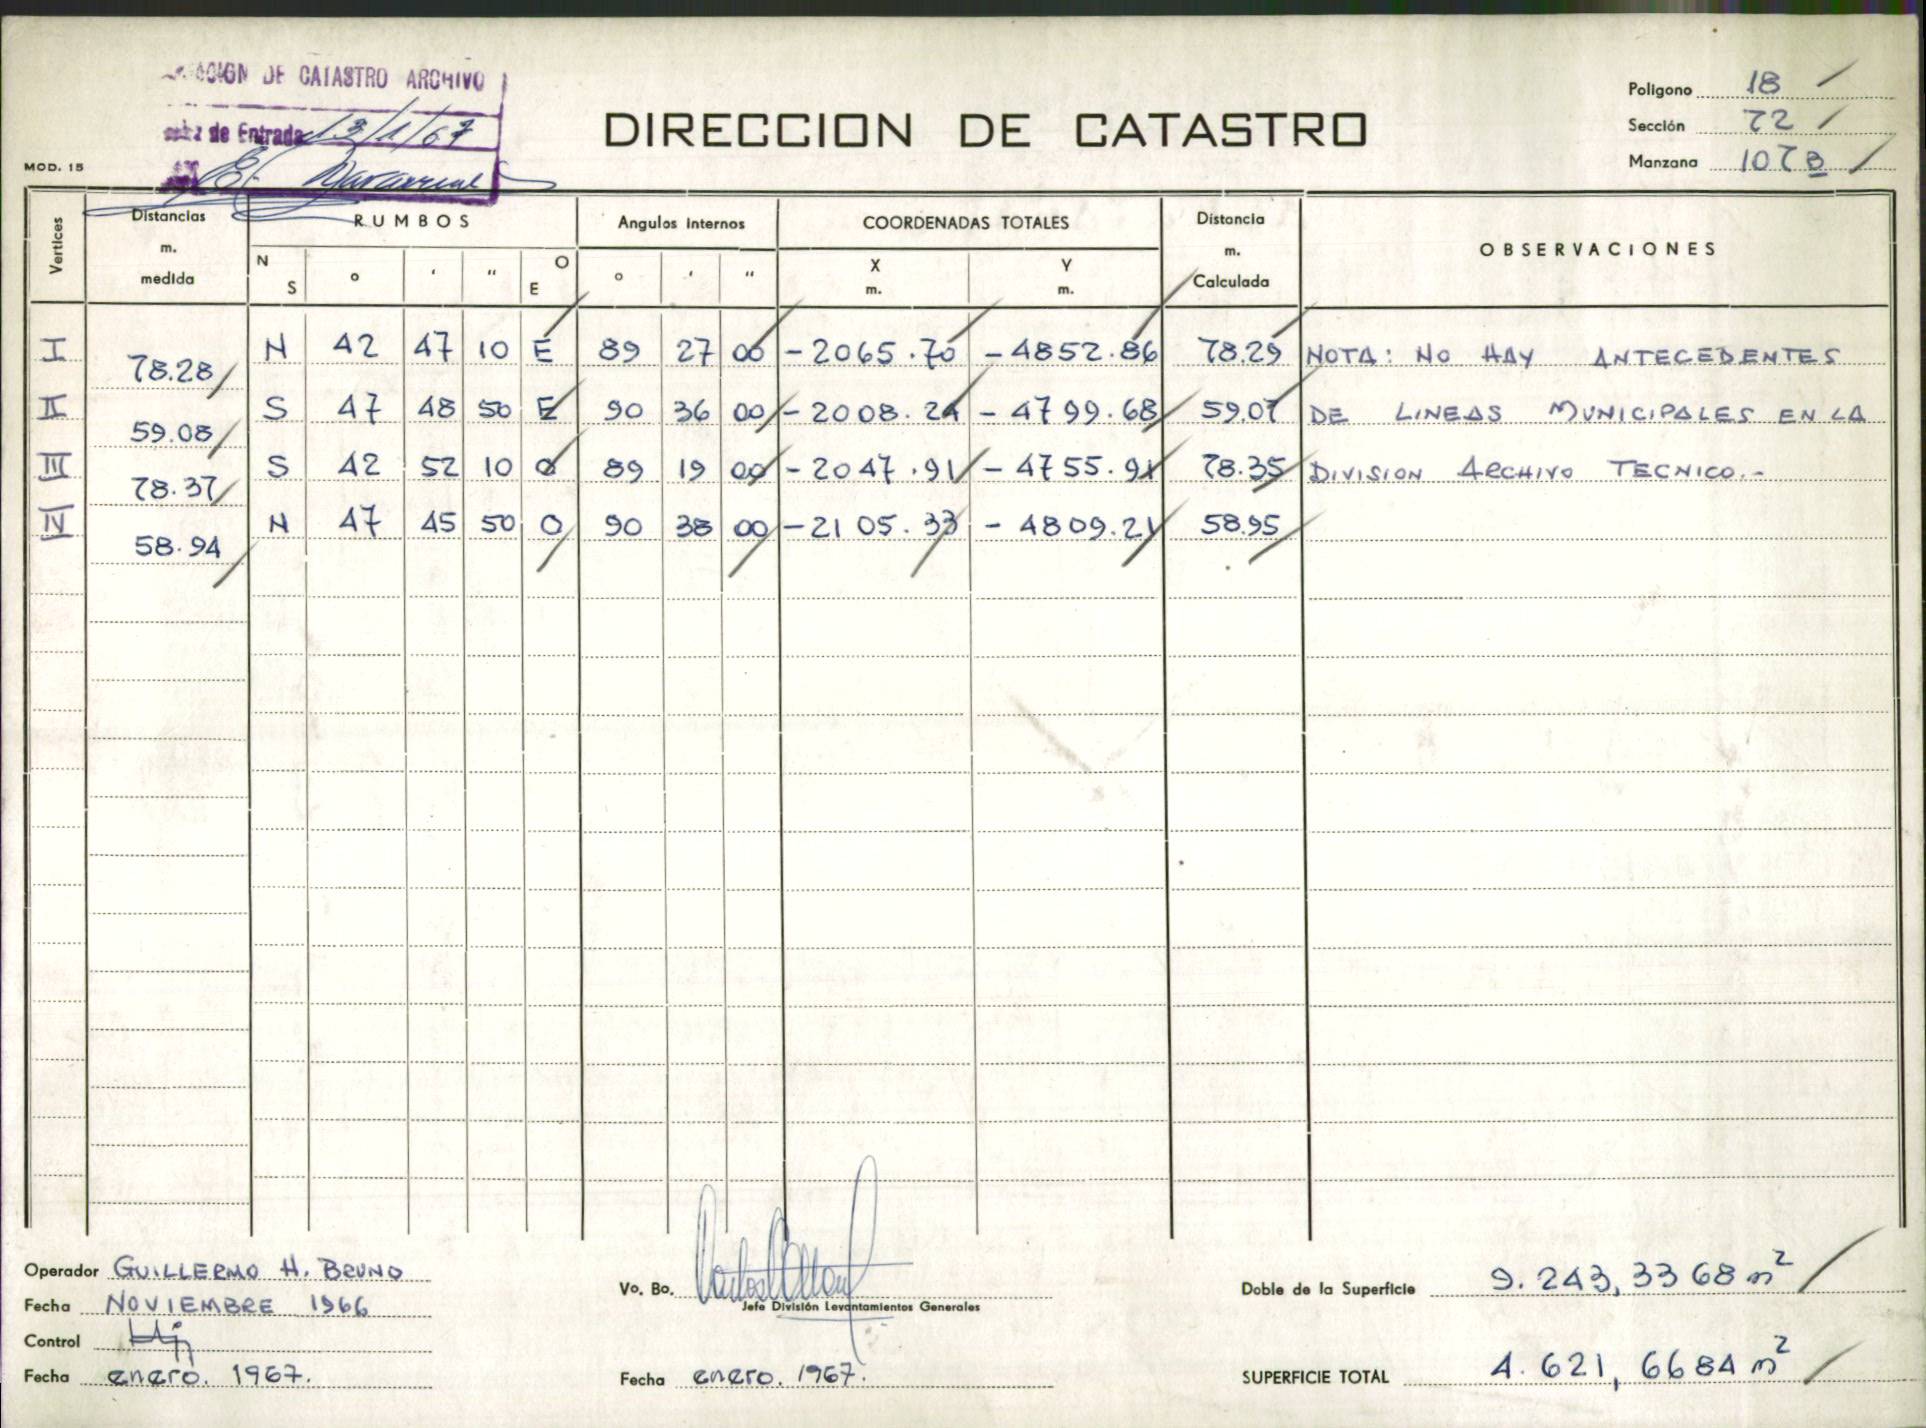 CION DE CATASTRO ARCHIVO
de Entrada 13/1/67
DIRECCION DE CATASTRO
Polígono 18
Sección 72
Manzana 107B
MOD. 15
Vertices
Distancias m. medida
RUMBOS
Angulos internos
COORDENADAS TOTALES
Distancia m. Calculada
OBSERVACIONES
N S ° ' " O E
° ' "
X m. Y m.
I 78.28 N 42 47 10 E 89 27 00 -2065.70 -4852.86 78.29 NOTA: NO HAY ANTECEDENTES
II 59.08 S 47 48 50 E 90 36 00 -2008.24 -4799.68 59.07 DE LINEAS MUNICIPALES EN LA
III 78.37 S 42 52 10 O 89 19 00 -2047.91 -4755.91 78.35 DIVISION ARCHIVO TECNICO.-
IV 58.94 N 47 45 50 O 90 38 00 -2105.33 -4809.21 58.95
Operador GUILLERMO H. BRUNO
Fecha NOVIEMBRE 1966
Control
Fecha enero. 1967.
Vo. Bo.
Jefe División Levantamientos Generales
Fecha enero. 1967.
Doble de la Superficie 9.243,3368 m²
SUPERFICIE TOTAL 4.621,6684 m²